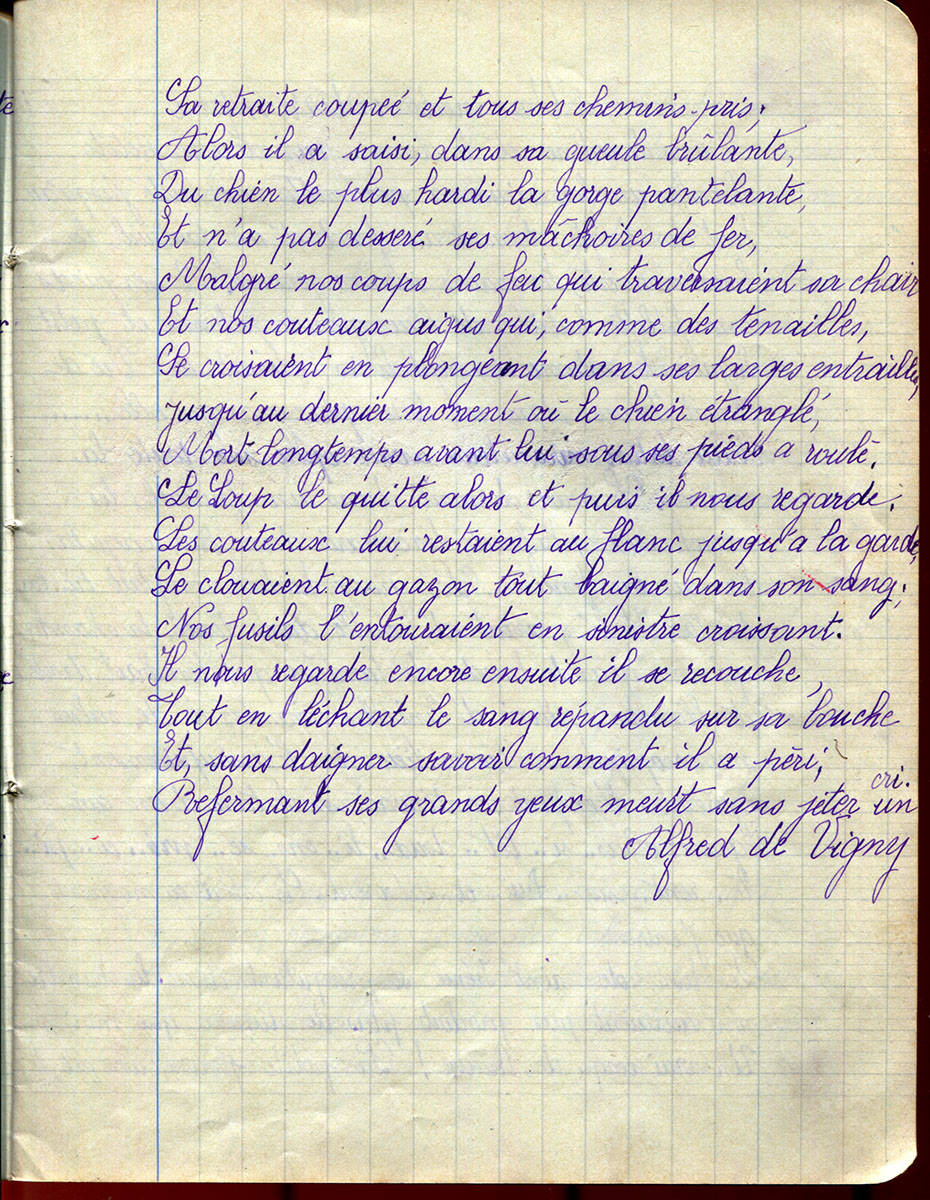 Sa retraite coupeé et tous ses chemins pris;
Alors il a saisi, dans sa gueule brûlante,
Du chien le plus hardi la gorge pantelante,
Et n'a pas desseré ses mâchoires de fer,
Malgré nos coups de feu qui traversaient sa chair
Et nos couteaux aigus qui, comme des tenailles,
Se croisaient en plongeant dans ses larges entrailles,
jusqu'au dernier moment où le chien étranglé,
Mort longtemps avant lui sous ses pieds a roulé.
Le Loup le quitte alors et puis il nous regarde.
Les couteaux lui restaient au flanc jusqu'a la garde,
Le clouaient au gazon tout baigné dans son sang;
Nos fusils l'entouraient en sinistre croissant.
Il nous regarde encore ensuite il se recouche,
Tout en léchant le sang répandu sur sa bouche
Et, sans daigner savoir comment il a péri,
Refermant ses grands yeux meurt sans jeter un cri.
Alfred de Vigny